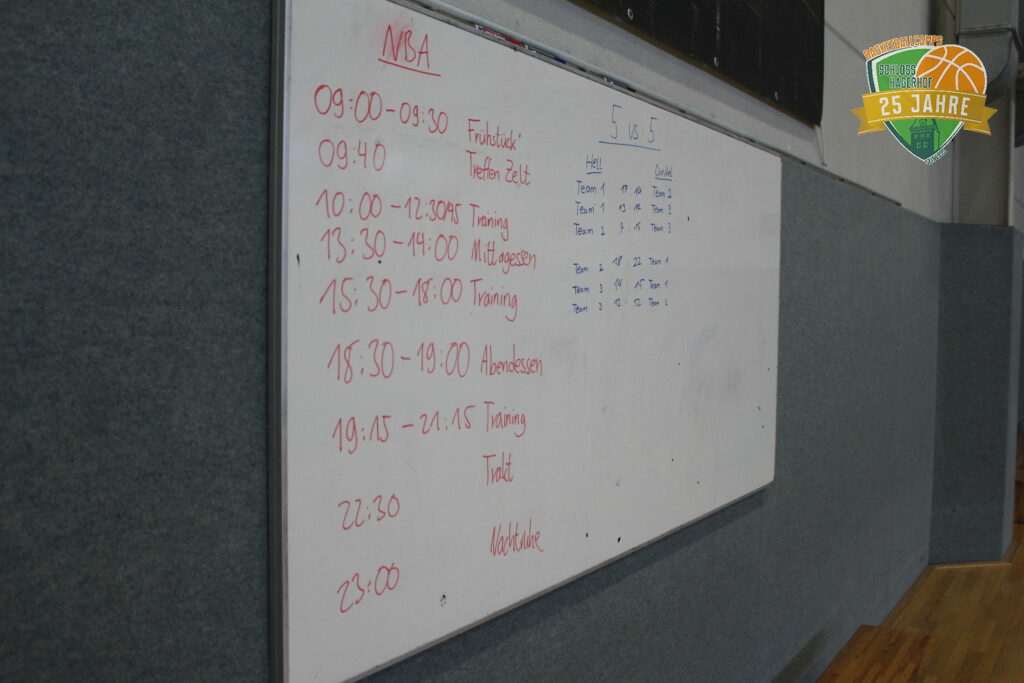 NBA
09:00-09:30 Frühstück
09:40 Treffen Zelt
10:00-12:30/45 Training
13:30-14:00 Mittagessen
15:30-18:00 Training
18:30-19:00 Abendessen
19:15-21:15 Training
22:30 Trakt
23:00 Nachtruhe
5 vs 5
Hell Dunkel
Team 1 Team 2
Team 1 Team 3
Team 2 Team 3
Team 2 18:22 Team 1
Team 3 14:15 Team 1
Team 3 12:12 Team 2
BASKETBALLCAMPS
SCHLOSS
HAGERHOF
25 JAHRE